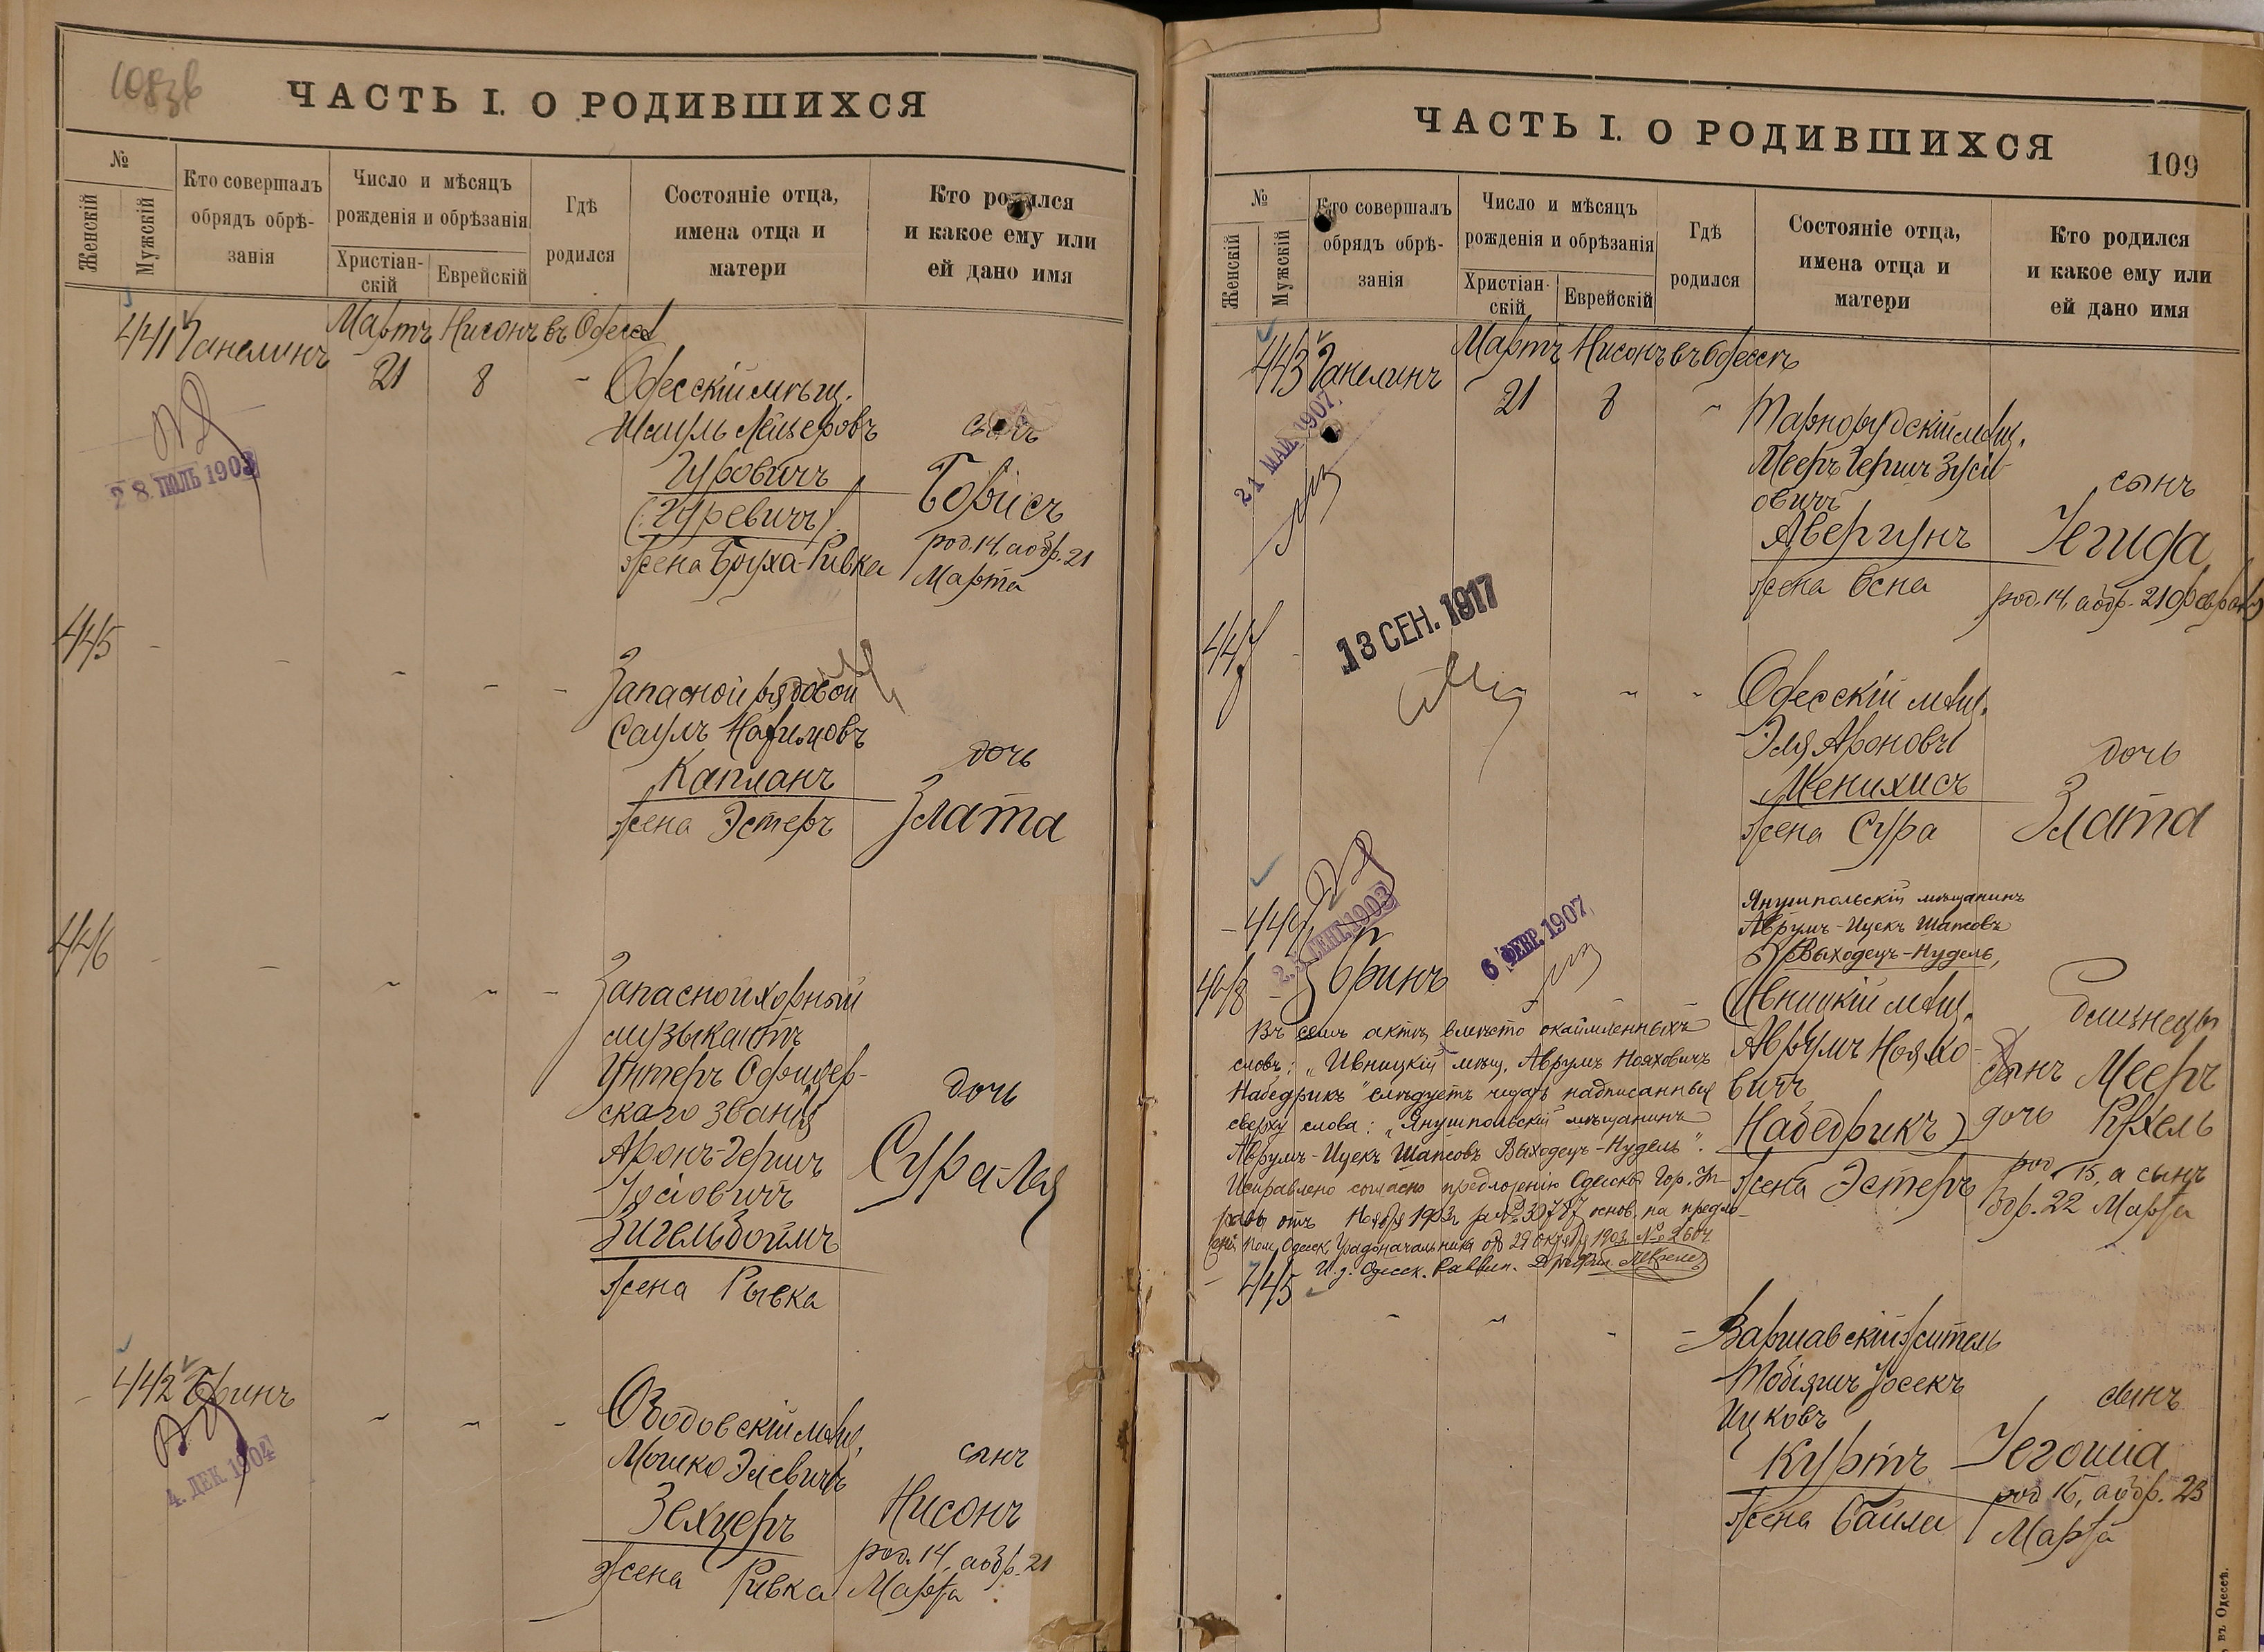 ЧАСТЬ I. О РОДИВШИХСЯ
№
Женскій
Мужскій
Кто совершалъ
обрядъ обрѣ-
занія
Число и мѣсяцъ
рожденія и обрѣзанія
Христіан-
скій
Еврейскій
Гдѣ
родился
Состояніе отца,
имена отца и
матери
Кто родился
и какое ему или
ей дано имя
441 Ганелинъ Мартъ Нисонъ въ Одессѣ
21 8 Одесскій мѣщ.
Шмуль Лейзеровъ сынъ
Гуровичъ
(Гуревичъ) Борисъ
жена Бруха-Ривка род. 14, а обр. 21
Марта
28. ІЮЛЬ 1903
445
Запасной рядовой
Саулъ
Капланъ дочь
жена Эстеръ Злата
446
Запасной хорный
музыкантъ
Унтеръ Офицер-
скаго званія дочь
Аронъ-Гершъ Сура-Лея
Іосіовичъ
Зигельбоймъ
жена Рывка
442 Бринъ
4. ДЕК. 1904
Озодовскій мѣщ.
Мошко Элевичъ сынъ
Зехцеръ Нисонъ
жена Ривка род. 14, а обр. 21
Марта
ЧАСТЬ I. О РОДИВШИХСЯ
109
№
Женскій
Мужскій
Кто совершалъ
обрядъ обрѣ-
занія
Число и мѣсяцъ
рожденія и обрѣзанія
Христіан-
скій
Еврейскій
Гдѣ
родился
Состояніе отца,
имена отца и
матери
Кто родился
и какое ему или
ей дано имя
443 Ганелинъ Мартъ Нисонъ въ Одессѣ
21 8 Тарнорудскій мѣщ.
21 МАЙ 1907
Мееръ Гершъ Зусі-
овичъ сынъ
Авергунъ Іегида
жена Осна род. 14, а обр. 21 февраля
447
13 СЕН. 1917
Одесскій мѣщ.
Эля Ароновъ дочь
Менихисъ
жена Сура Злата
Янушпольскій мѣщанинъ
Аврумъ-Ицекъ Шапсовъ
Выходецъ-Нудель,
444
1903
6 ФЕВР. 1907
448 Бринъ
Ивницкій мѣщ. близнецы
Аврумъ Нояхо-
вичъ сынъ Мееръ
Набедрикъ) дочь Рухель
жена Эстеръ род. 15, а сынъ
обр. 22 Марта
Въ семъ актѣ, вмѣсто окаймленныхъ
словъ: „Ивницкій мѣщ. Аврумъ Нояховичъ
Набедрикъ" слѣдуетъ читать надписанныя
сверху слова: „Янушпольскій мѣщанинъ
Аврумъ-Ицекъ Шапсовъ Выходецъ-Нудель".
Исправлено согласно предложенію Одесской Гор. Уп-
равы отъ Ноября 1903 за № 30787 основ. на предло-
женіи Пом. Одесск. Градоначальника отъ 29 Октября 1903 № 2604.
И. д. Одесск. Раввин.
445
Варшавскій житель
Тобіяшъ Іосекъ сынъ
Ицковъ
Куртъ Іегошіа
жена Байла род 15, а обр. 23
Марта
въ Одессѣ.